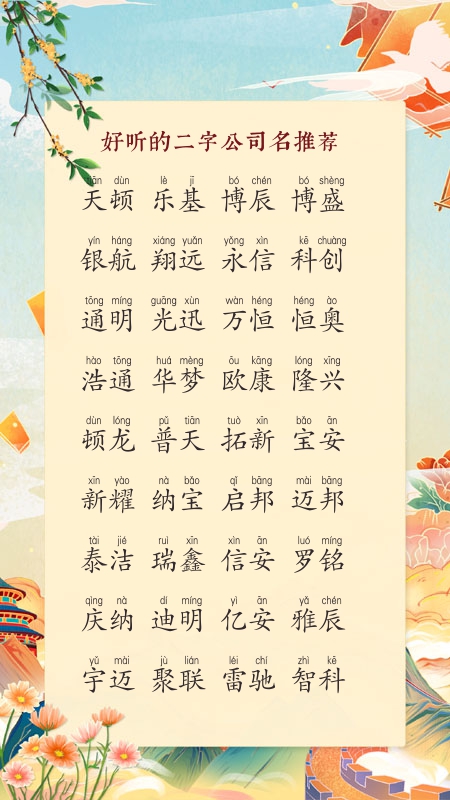 好听的二字公司名推荐
tiān dùn lè jī bó chén bó shèng
天顿 乐基 博辰 博盛
yín háng xiáng yuǎn yǒng xìn kē chuàng
银航 翔远 永信 科创
tōng míng guāng xùn wàn héng héng ào
通明 光迅 万恒 恒奥
hào tōng huá mèng ōu kāng lóng xīng
浩通 华梦 欧康 隆兴
dùn lóng pǔ tiān tuò xīn bǎo ān
顿龙 普天 拓新 宝安
xīn yào nà bǎo qǐ bāng mài bāng
新耀 纳宝 启邦 迈邦
tài jié ruì xīn xìn ān luó míng
泰洁 瑞鑫 信安 罗铭
qìng nà dí míng yì ān yǎ chén
庆纳 迪明 亿安 雅辰
yǔ mài jù lián léi chí zhì kē
宇迈 聚联 雷驰 智科